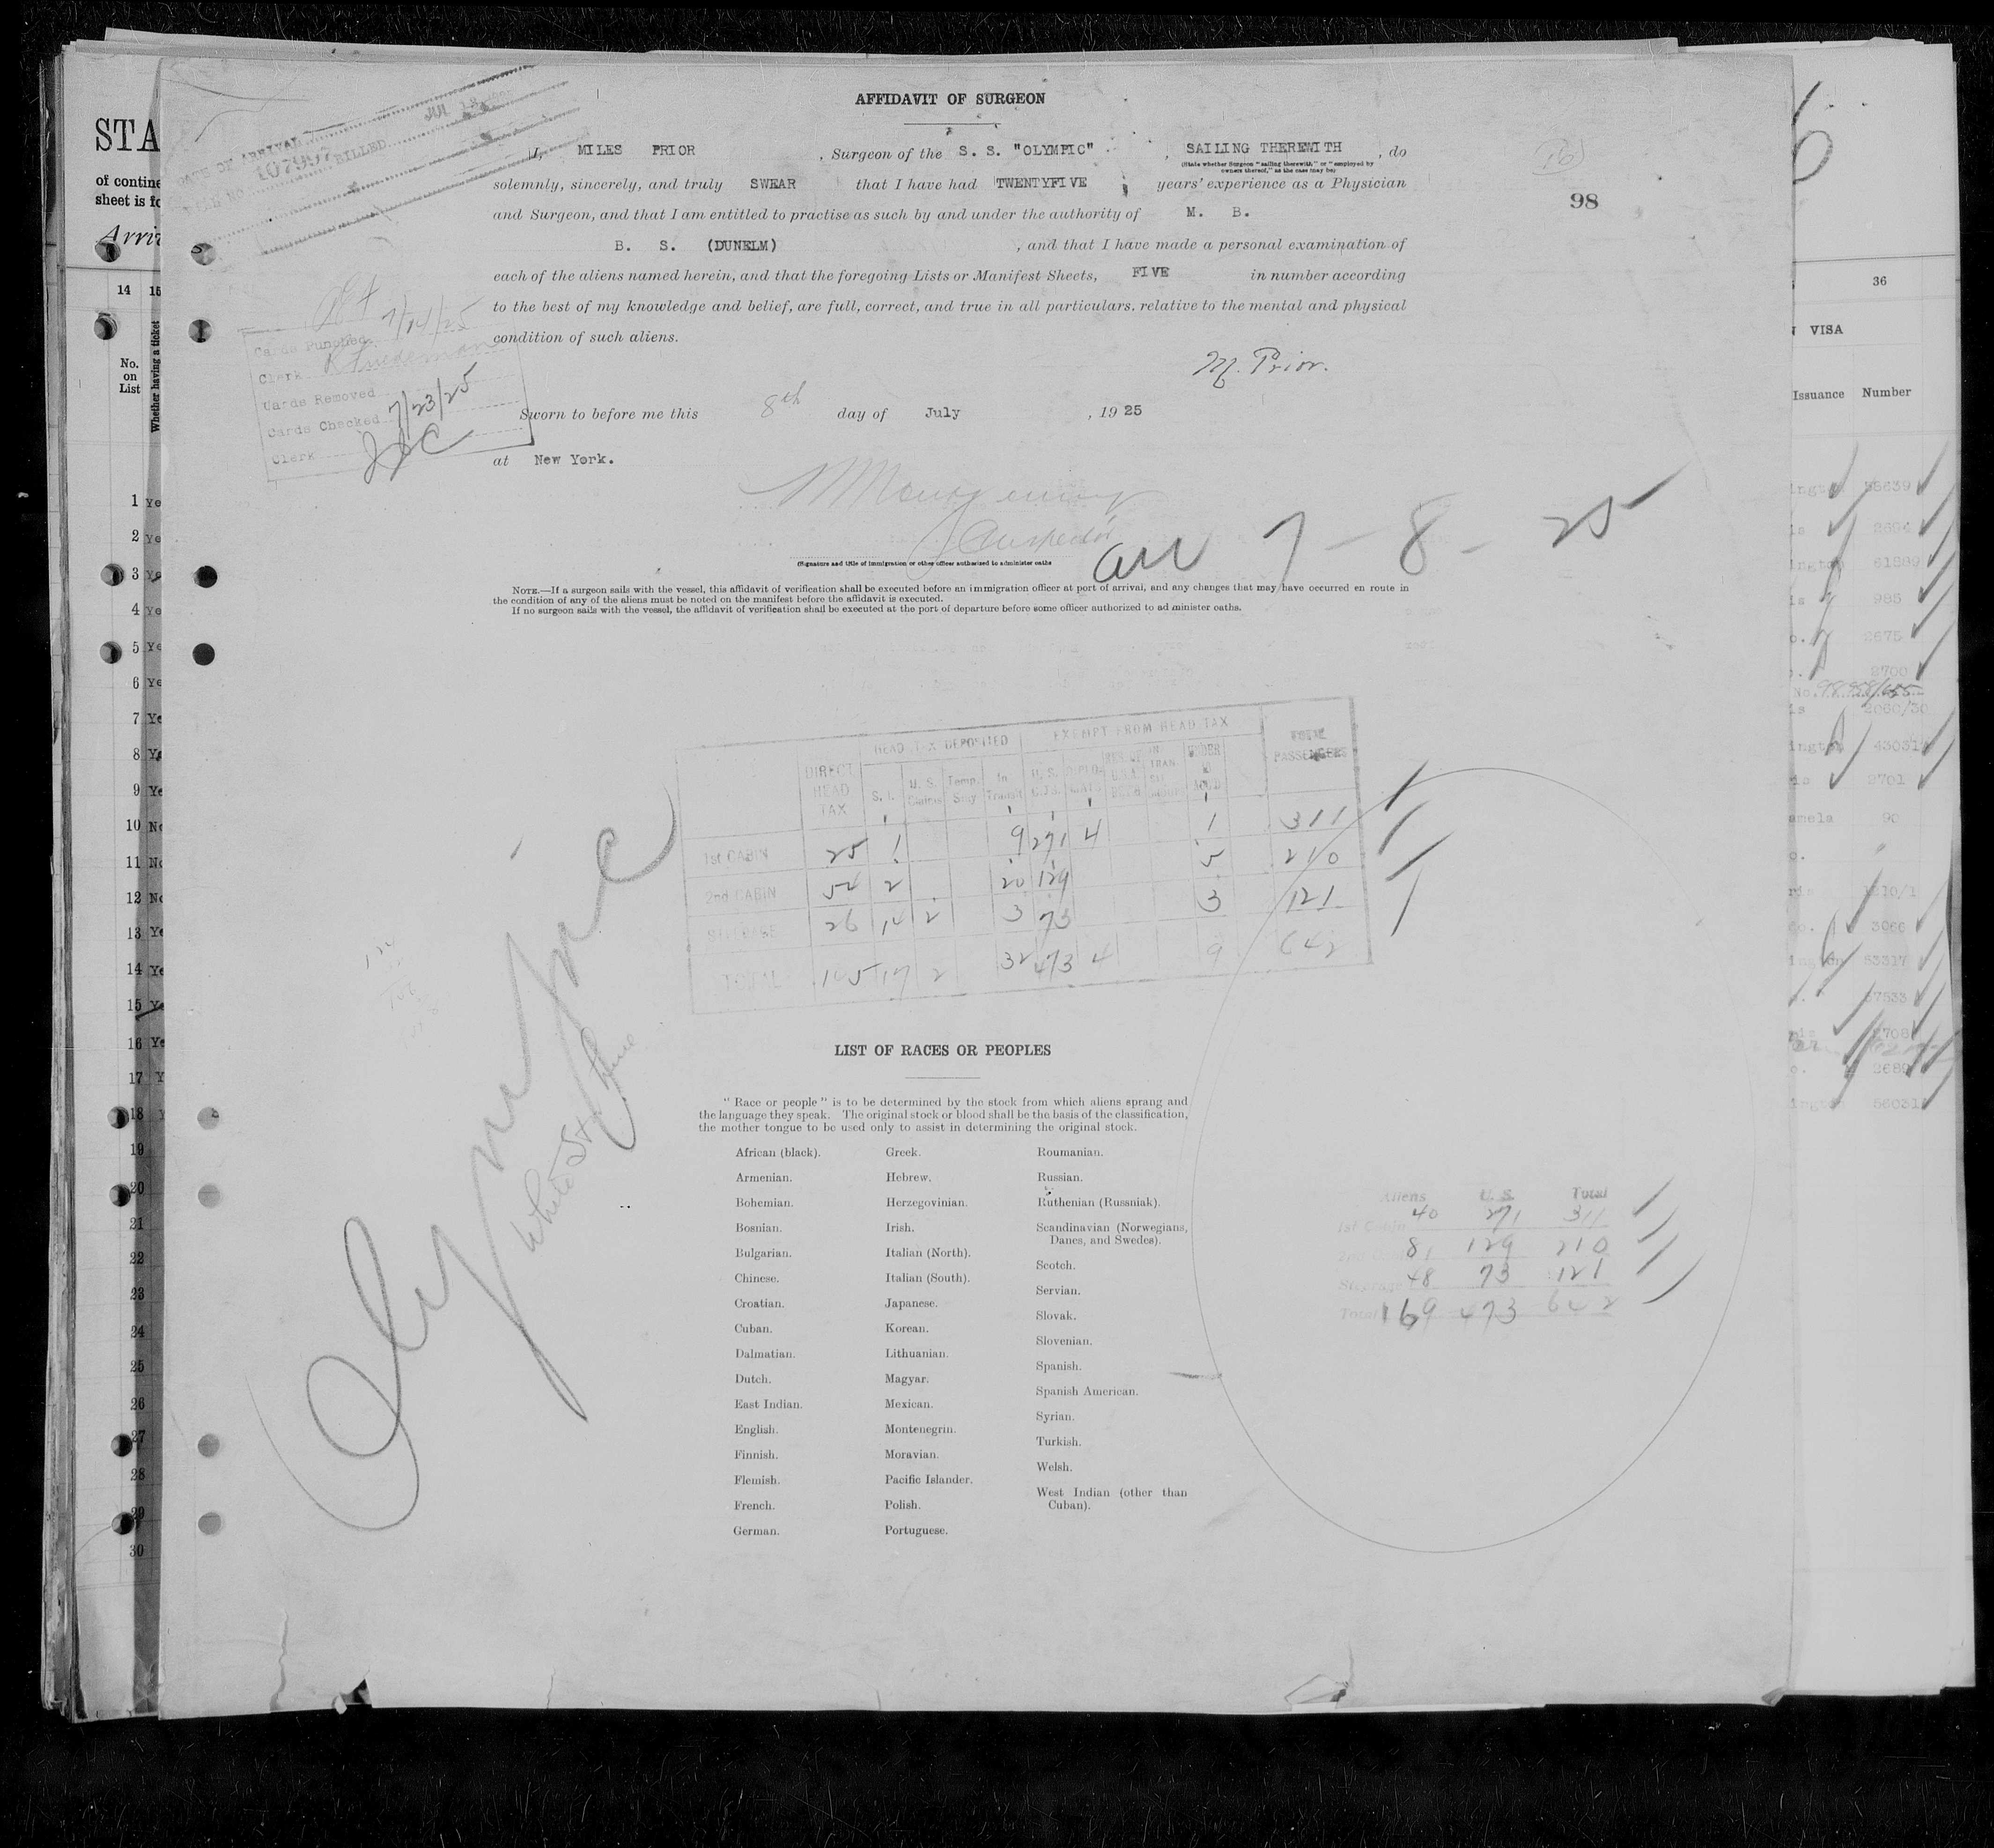 AFFIDAVIT OF SURGEON
I, MILES PRIOR, Surgeon of the S. S. "OLYMPIC", SAILING THEREWITH, do
(State whether Surgeon "sailing therewith," or "employed by
owners thereof," as the case may be)
solemnly, sincerely, and truly SWEAR that I have had TWENTYFIVE years' experience as a Physician
and Surgeon, and that I am entitled to practise as such by and under the authority of M. B.
B. S. (DUNELM), and that I have made a personal examination of
each of the aliens named herein, and that the foregoing Lists or Manifest Sheets, FIVE in number according
to the best of my knowledge and belief, are full, correct, and true in all particulars, relative to the mental and physical
condition of such aliens.
M. Prior.
Sworn to before me this 8th day of July, 1925
at New York.
Inspector
(Signature and title of immigration or other officer authorized to administer oaths
arr 7-8-25
NOTE.—If a surgeon sails with the vessel, this affidavit of verification shall be executed before an immigration officer at port of arrival, and any changes that may have occurred en route in
the condition of any of the aliens must be noted on the manifest before the affidavit is executed.
If no surgeon sails with the vessel, the affidavit of verification shall be executed at the port of departure before some officer authorized to administer oaths.
98
(16)
DATE OF ARRIVAL JUL
BILLED
Cards Punched 7/14/25
Clerk
Cards Removed
Cards Checked 7/23/25
Clerk
HEAD TAX DEPOSITED EXEMPT FROM HEAD TAX
DIRECT HEAD TAX S. I. U. S. Claims Temp. Stay In Transit U. S. UNDER 16 TOTAL PASSENGERS
1st CABIN 25 1 9 271 4 1 311
2nd CABIN 54 2 20 129 5 210
STEERAGE 26 14 2 3 73 3 121
TOTAL 105 17 2 32 473 4 9 642
Olympic
White Star Line
LIST OF RACES OR PEOPLES
"Race or people" is to be determined by the stock from which aliens sprang and
the language they speak. The original stock or blood shall be the basis of the classification,
the mother tongue to be used only to assist in determining the original stock.
African (black).
Armenian.
Bohemian.
Bosnian.
Bulgarian.
Chinese.
Croatian.
Cuban.
Dalmatian.
Dutch.
East Indian.
English.
Finnish.
Flemish.
French.
German.
Greek.
Hebrew.
Herzegovinian.
Irish.
Italian (North).
Italian (South).
Japanese.
Korean.
Lithuanian.
Magyar.
Mexican.
Montenegrin.
Moravian.
Pacific Islander.
Polish.
Portuguese.
Roumanian.
Russian.
Ruthenian (Russniak).
Scandinavian (Norwegians,
Danes, and Swedes).
Scotch.
Servian.
Slovak.
Slovenian.
Spanish.
Spanish American.
Syrian.
Turkish.
Welsh.
West Indian (other than
Cuban).
Aliens U. S. Total
1st Cabin 40 271 311
2nd 81 129 210
Steerage 48 73 121
Total 169 473 642
STA
of contine
sheet is fo
Arriv
14 15
No.
on
List
Whether having a ticket
1 Ye
2 Ye
3 Ye
4 Ye
5 Ye
6 Ye
7 Ye
8 Ye
9 Ye
10 No
11 No
12 No
13 Ye
14 Ye
15 Ye
16 Ye
17 Y
18 Y
19
20
21
22
23
24
25
26
27
28
29
30
36
VISA
Issuance Number
2694
985
2675
2700
2701
90
3066